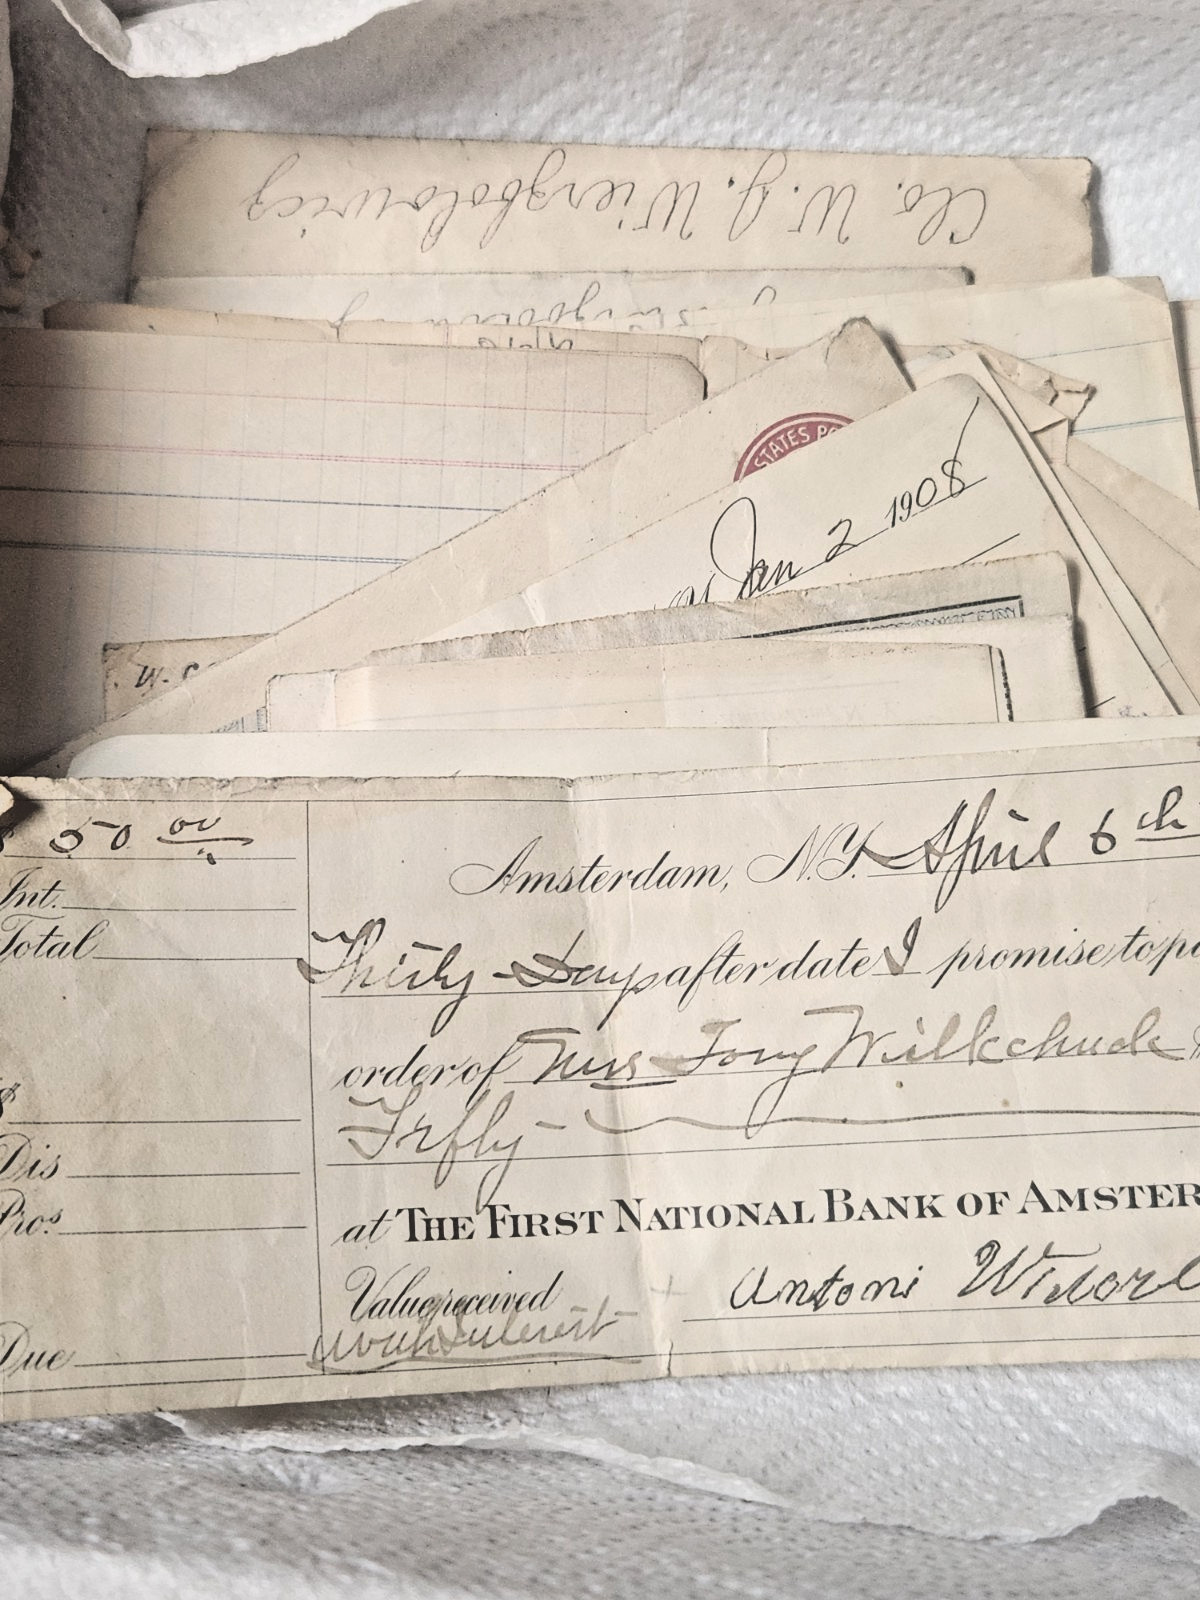 C/o. W. J. Wierzbolowicz
STATES PO
Jan 2 1908
W.
$ 50 00
Int.
Total
$
Dis
Pros.
Due
Amsterdam, N.Y. April 6th
Thirty Days after date I promise to pa
order of Mrs Tony Wilkchuck
Fifty
at THE FIRST NATIONAL BANK OF AMSTER
Value received
with Interest
Antoni